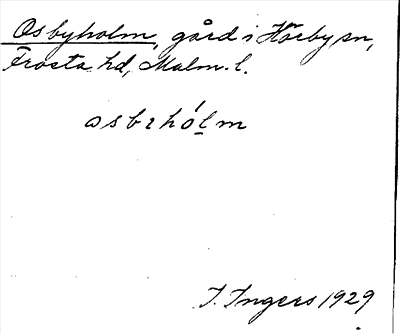 Osbyholm, gård i Hörby sn,
Frosta hd, Malm. l.
osbɿhólm
I. Ingers 1929